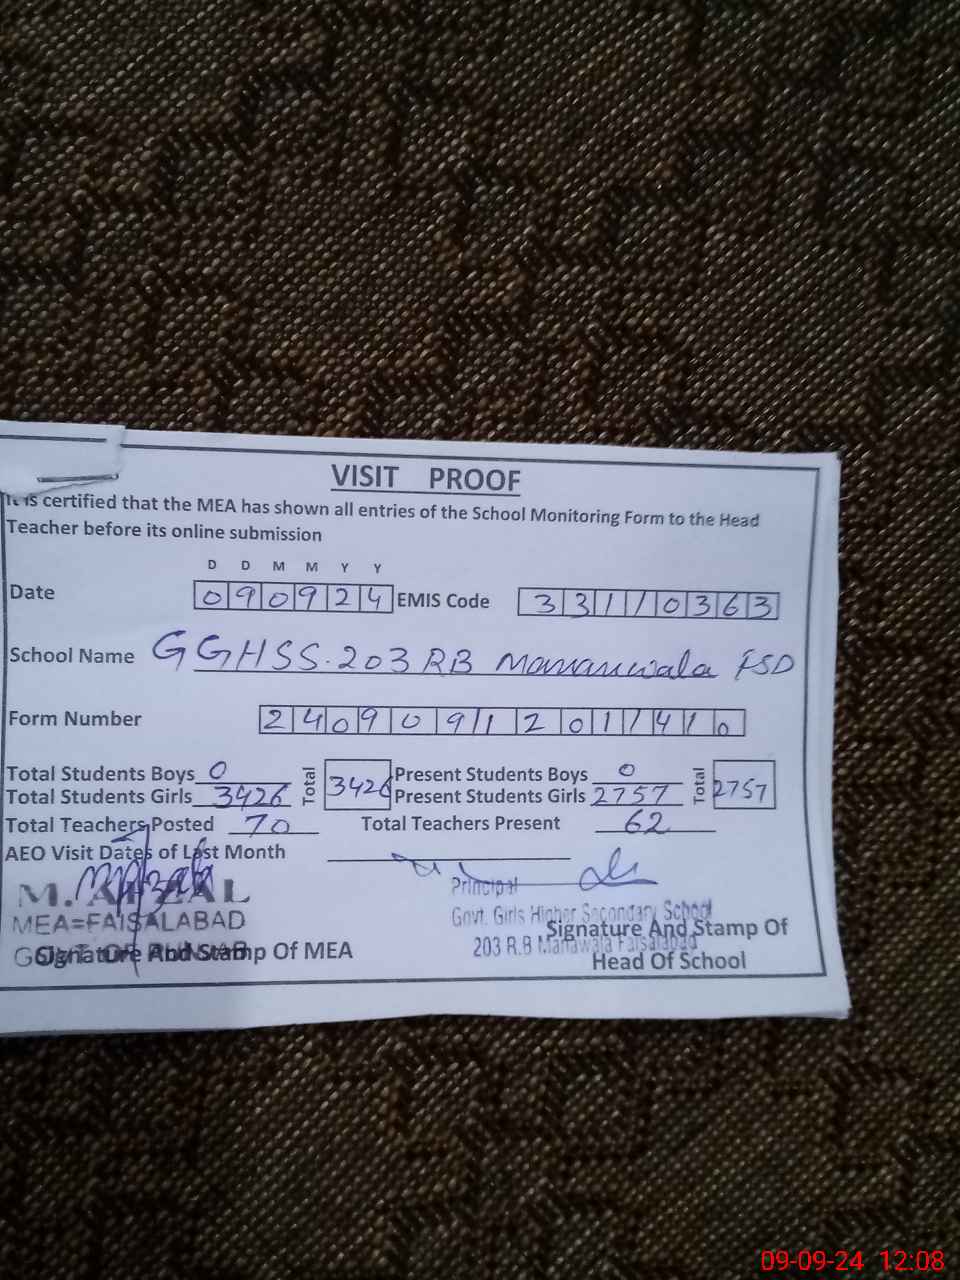 VISIT PROOF
It is certified that the MEA has shown all entries of the School Monitoring Form to the Head
Teacher before its online submission
D D M M Y Y
Date 090924 EMIS Code 33110363
School Name GGHSS.203 RB Mananwala FSD
Form Number 24090912011410
Total Students Boys 0 Total 3426 Present Students Boys 0 Total 2757
Total Students Girls 3426 Present Students Girls 2757
Total Teachers Posted 70 Total Teachers Present 62
AEO Visit Dates of Last Month
M. AFZAL
MEA=FAISALABAD
GOVT. OF PUNJAB
Signature And Stamp Of MEA
Principal
Govt. Girls Higher Secondary School
203 R.B Manawala Faisalabad
Signature And Stamp Of
Head Of School
09-09-24 12:08